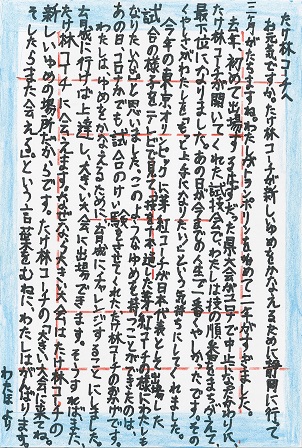 たけ林コーチへ
お元気ですか。たけ林コーチが新しいゆめをかなえるために静岡に行って
三年がたちますね。わたしがトランポリンを始めて二年がすぎました。
去年、初めて出場するはずだった県大会がコロナで中止になったかわりに
たけ林コーチが開いてくれた試技会で、わたしは技の順番をまちがえて、
最下位になりました。あの日が今までの人生で一番くやしかったです。その
くやしさがわたしを「もっと上手になりたい」という気持ちにしてくれました。
今年の東京オリンピックに芽紅コーチが日本代表として出場した
試合の様子をテレビで見て、
なりたいな」と思いました。このようなゆめを持つことができたのは、
あの日、コロナかでも、試合のけい験をさせてくれたたけ林コーチのおかげです。
わたしはゆめをかなえるために、育成にチャレンジすることにしました。
育成に行けば上達し、大きい大会に出場できます。そうすればまた、
たけ林コーチに会えます。なぜなら、大きい大会は、たけ林コーチの
新しいゆめの場所だからです。たけ林コーチの「大きい大会に来てね。
そしたらまた会える。」という言葉をむねに、わたしはがんばります。
わたほより